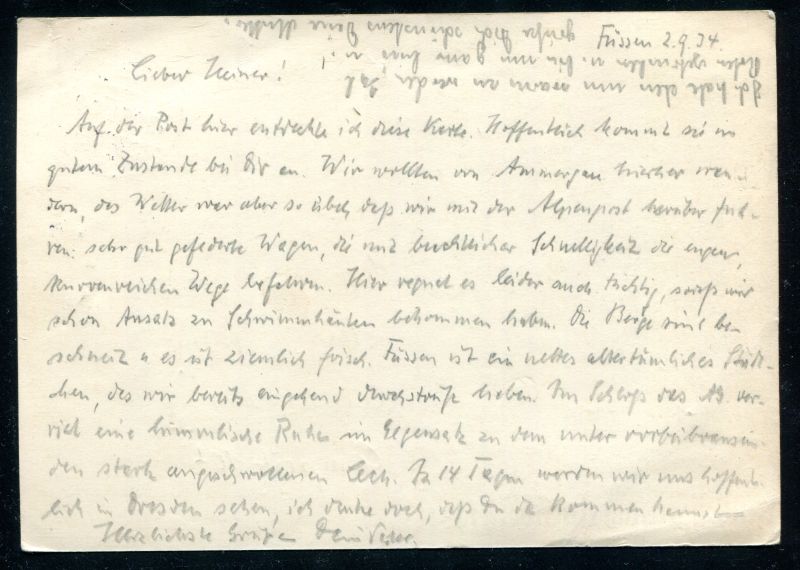 Füssen 2.9.34.
Lieber Heiner!
Auf der Post hier entdeckte ich diese Karte. Hoffentlich kommt sie in
gutem Zustande bei Dir an. Wir wollten von Ammergau hierher wan-
dern, das Wetter war aber so übel, daß wir mit der Alpenpost herüber fuh-
ren: sehr gut gefederte Wagen, die mit beachtlicher Schnelligkeit die engen,
kurvenreichen Wege befahren. Hier regnet es leider auch tüchtig, sodaß wir
schon Ansatz zu Schwimmhäuten bekommen haben. Die Berge sind be-
schneit u es ist ziemlich frisch. Füssen ist ein nettes altertümliches Städt-
chen, das wir bereits eingehend durchstreift haben. Im Schloß des
eine himmlische Ruhe, im Gegensatz zu dem unter vorbeibrausen-
den stark angeschwollenen Lech. In 14 Tagen werden wir uns hoffent-
lich in Dresden sehen, ich denke doch, daß Du da kommen kannst
Herzlichste Grüße Dein Vater.
Ich habe den nun
u. bin nun ganz
grüße Dich schönstens Deine Mutter.